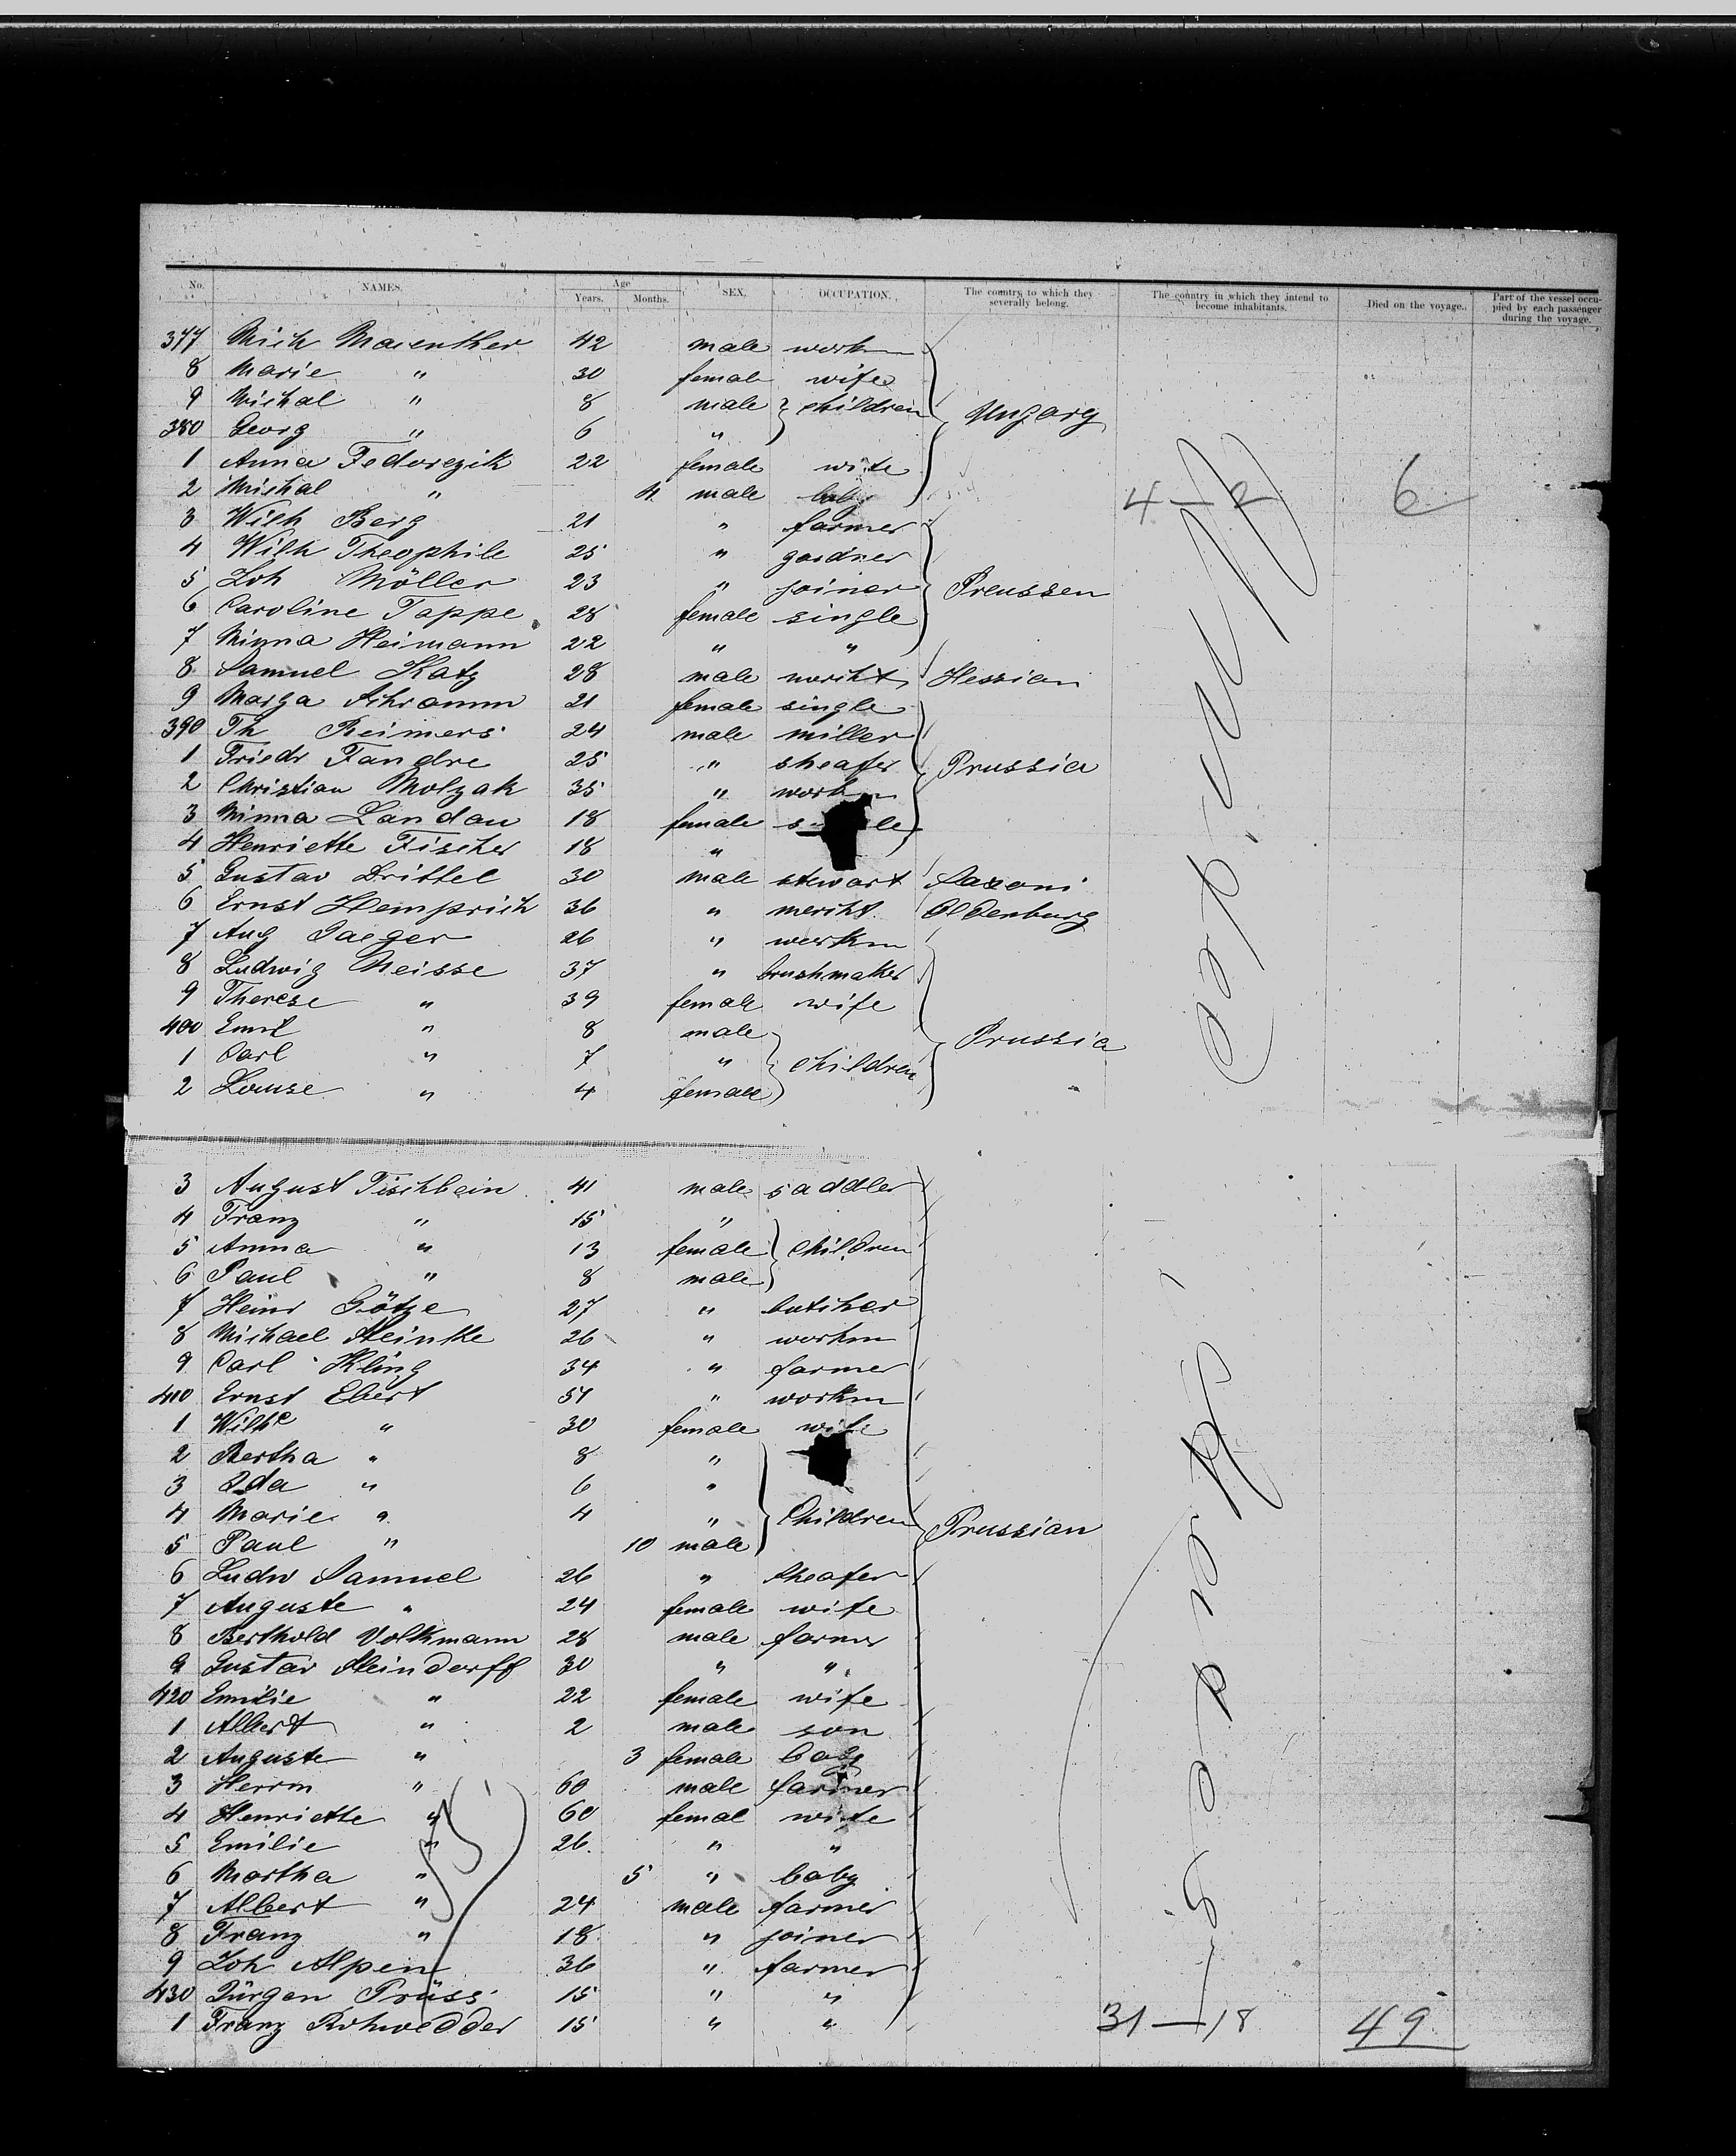 No. NAMES. Age Years. Months. SEX. OCCUPATION. The country to which they severally belong. The country in which they intend to become inhabitants. Died on the voyage. Part of the vessel occupied by each passenger during the voyage.
377 Mich Maienther 42 male workm
8 Marie " 30 female wife
9 Michal " 8 male children Ungarg
380 Georg " 6 "
1 Anna Fedorczik 22 female wife
2 Michal " 4 male baby 4—2 6
3 Wilh Berg 21 " farmer
4 Wilh Theophile 25 " gardner
5 Joh Möller 23 " joiner Preussen
6 Caroline Tappe 28 female single
7 Minna Heimann 22 " "
8 Samuel Katz 28 male mercht Hessian
9 Marga Schramm 21 female single
390 Th Reimers 24 male miller
1 Friedr Fandre 25 " sheafer Prussia
2 Christian Molzak 35 " workm
3 Minna Landau 18 female s le
4 Henriette Fischer 18 "
5 Gustav Drittel 30 male stewart Saxoni
6 Ernst Hemprich 36 " mercht. Oldenburg
7 Aug Jaeger 26 " workm
8 Ludwig Neisse 37 " brushmaker
9 Therese " 39 female wife
400 Emil " 8 male Prussia
1 Carl " 7 " children
2 Louise " 4 female
3 August Fischbein 41 male saddler
4 Franz " 15 "
5 Anna " 13 female children
6 Paul " 8 male
7 Heinr Götze 27 " butcher
8 Michael Steinke 26 " workm
9 Carl Kling 34 " farmer
410 Ernst Ebert 51 " workm
1 Wilhe " 30 female wife
2 Bertha " 8 "
3 Ida " 6 "
4 Marie " 4 " Children Prussian
5 Paul " 10 male
6 Ludw Samuel 26 " sheafer
7 Auguste " 24 female wife
8 Berthold Volkmann 28 male farmer
9 Gustav Steindorff 30 " "
420 Emilie " 22 female wife
1 Albert " 2 male son
2 Auguste " 3 female baby
3 Herrm " 60 male farmer
4 Henriette " 60 femal wife
5 Emilie " 26 " "
6 Martha " 5 " baby
7 Albert " 24 male farmer
8 Franz " 18 " joiner
9 Joh Alpen 36 " farmer
430 Jürgen Prüss 15 " "
1 Franz Rohwedder 15 " " 31—18 49